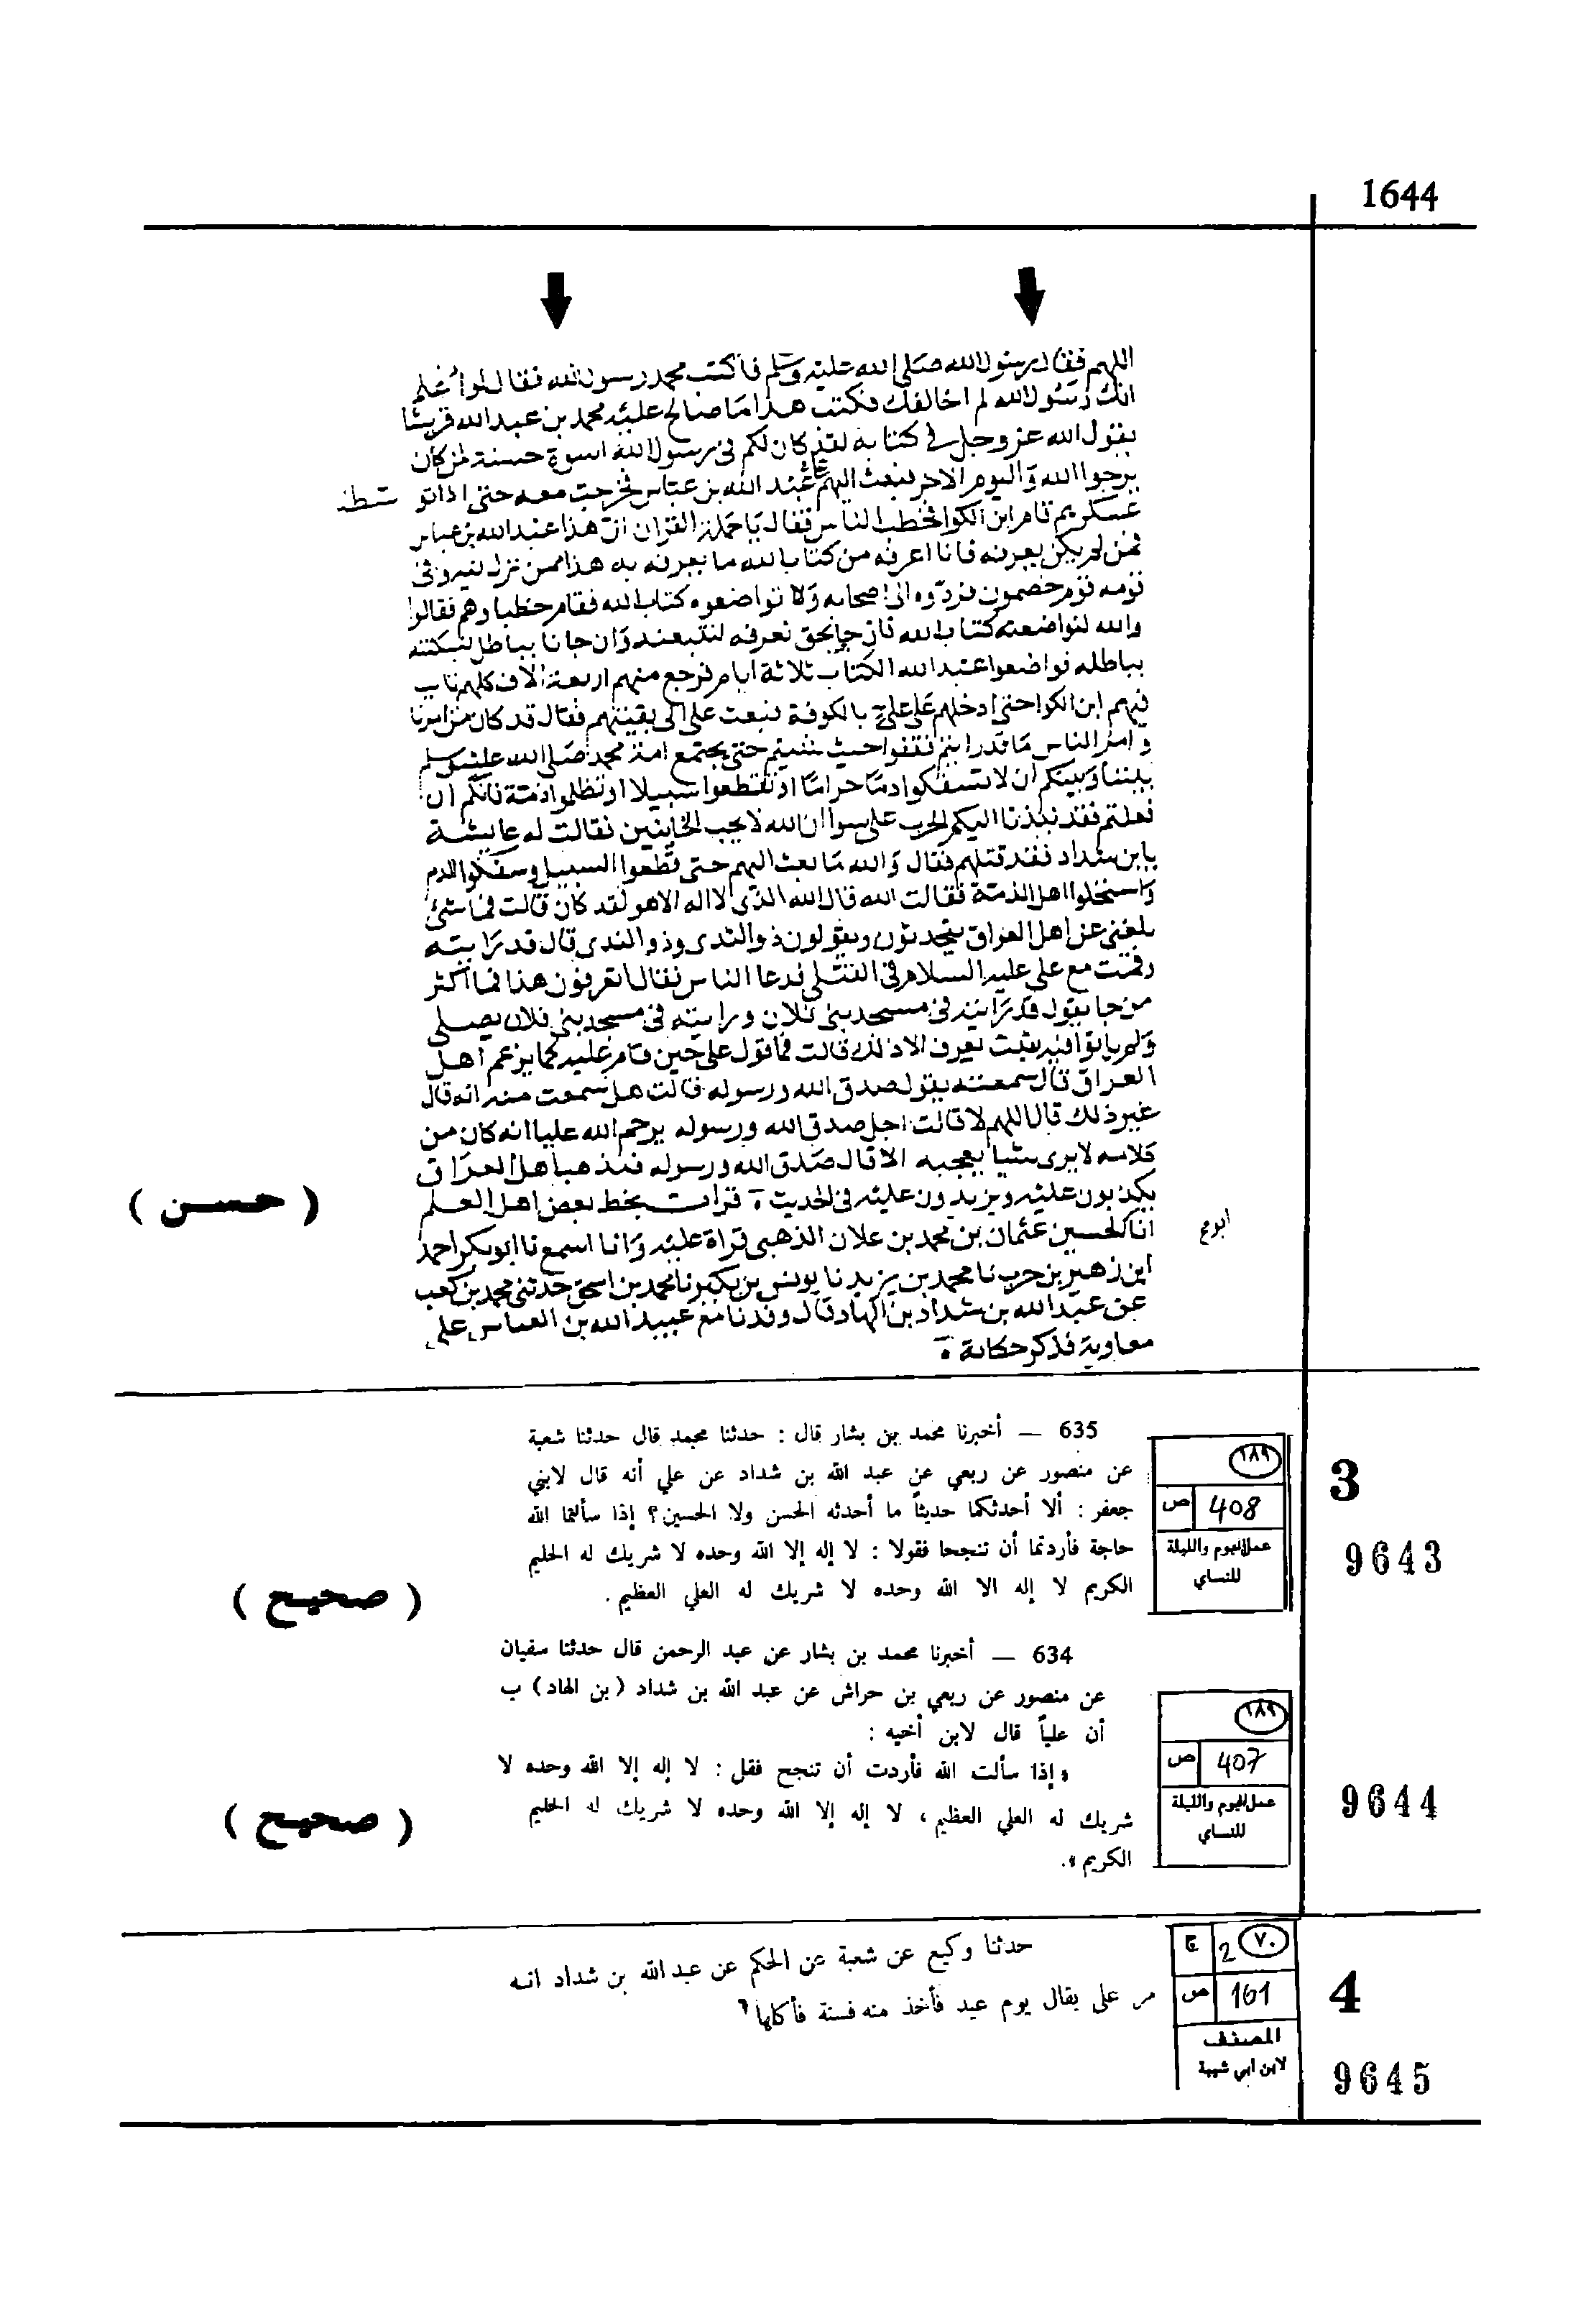 1644
اللهم فقال رسول الله صلى الله عليه وسلم فاكتب محمد رسول الله فقال لو اعلم
انك رسول الله لم اخالفك فكتب هذا ما صالح عليه محمد بن عبد الله قريشا
يقول الله عز وجل في كتابه لقد كان لكم في رسول الله اسوة حسنة لمن كان
يرجوا الله واليوم الاخر فبعث اليهم علي عبد الله بن عباس فخرجت معه حتى اذا تو سطنا
عسكرهم قام ابن الكوا فخطب الناس فقال يا حملة القران ان هذا عبد الله بن عباس
فمن لم يكن يعرفه فانا اعرفه من كتاب الله ما يعرفه به هذا ممن نزل فيه وفي
قومه قوم خصمون فردوه الى صاحبه ولا تواضعوه كتاب الله فقام خطباوهم فقالوا
والله لنواضعنه كتاب الله فان جا بحق نعرفه لنتبعنه وان جانا بباطل لنبكتنه
بباطله فواضعوا عبد الله الكتاب ثلاثة ايام فرجع منهم اربعة الاف كلهم تايب
فيهم ابن الكوا حتى ادخلهم على علي بالكوفة فبعث علي الى بقيتهم فقال قد كان من امرنا
و امر الناس ما قد رايتم فقفوا حيث شئتم حتى يجتمع امة محمد صلى الله عليه وسلم
بيننا وبينكم ان لا تسفكوا دما حراما او تقطعوا سبيلا او تظلموا ذمة فانكم ان
فعلتم فقد نبذنا اليكم الحرب على سوا ان الله لا يحب الخاينين فقالت له عايشة
يا بن شداد فقد قتلهم فقال والله ما بعث اليهم حتى قطعوا السبيل وسفكوا الدم
واستحلوا اهل الذمة فقالت الله قال الله الذي لا اله الا هو لقد كان قالت فما شئ
بلغني عن اهل العراق يتحدثون ويقولون ذو الثدى وذو الثدى قال قد رايته
وقمت مع علي عليه السلام في القتلى فدعا الناس فقال اتعرفون هذا فما اكثر
من جا يقول قد رايته في مسجد بني فلان ورايته في مسجد بني فلان يصلي
ولم ياتوا فيه بثبت يعرف الا ذلك قالت فما قول علي حين قام عليه كما يزعم اهل
العراق قال سمعته يقول صدق الله ورسوله قالت هل سمعت منه انه قال
غير ذلك قال اللهم لا قالت اجل صدق الله ورسوله يرحم الله عليا انه كان من
كلامه لا يرى شيا يعجبه الا قال صدق الله ورسوله فيذهب اهل العراق
يكذبون عليه ويزيدون عليه في الحديث ه قرات بخط بعض اهل العلم
( حسن )
انا الحسين عثمان بن محمد بن علان الذهبي قراة عليه وانا اسمع نا ابو بكر احمد
ابن زهير بن حرب نا محمد بن يزيد نا يونس بن بكير نا محمد بن اسحق حدثني محمد بن كعب
عن عبد الله بن شداد بن الهاد قال وفدنا مع عبيد الله بن العباس على
معاوية فذكر حكاية ه
635 — أخبرنا محمد بن بشار قال : حدثنا محمد قال حدثنا شعبة
عن منصور عن ربعي عن عبد الله بن شداد عن علي أنه قال لابني
جعفر : ألا أحدثكما حديثاً ما أحدثه الحسن ولا الحسين؟ إذا سألتما الله
حاجة فأردتما أن تنجحا فقولا : لا إله إلا الله وحده لا شريك له الحليم
الكريم لا إله الا الله وحده لا شريك له العلي العظيم .
( صحيح )
١٨٩
408 ص
عمل اليوم والليلة
للنساي
3
9643
634 — أخبرنا محمد بن بشار عن عبد الرحمن قال حدثنا سفيان
عن منصور عن ربعي بن حراش عن عبد الله بن شداد (بن الهاد) ب
أن علياً قال لابن أخيه :
«إذا سألت الله فأردت أن تنجح فقل : لا إله إلا الله وحده لا
شريك له العلي العظيم ، لا إله إلا الله وحده لا شريك له الحليم
الكريم».
( صحيح )
١٨٩
407 ص
عمل اليوم والليلة
للنساي
9644
حدثنا وكيع عن شعبة عن الحكم عن عبد الله بن شداد انه
مر على بقال يوم عيد فأخذ منه فسنة فأكلها٦
٧٠ 2 ج
161 ص
المصنف
لابن ابي شيبة
4
9645